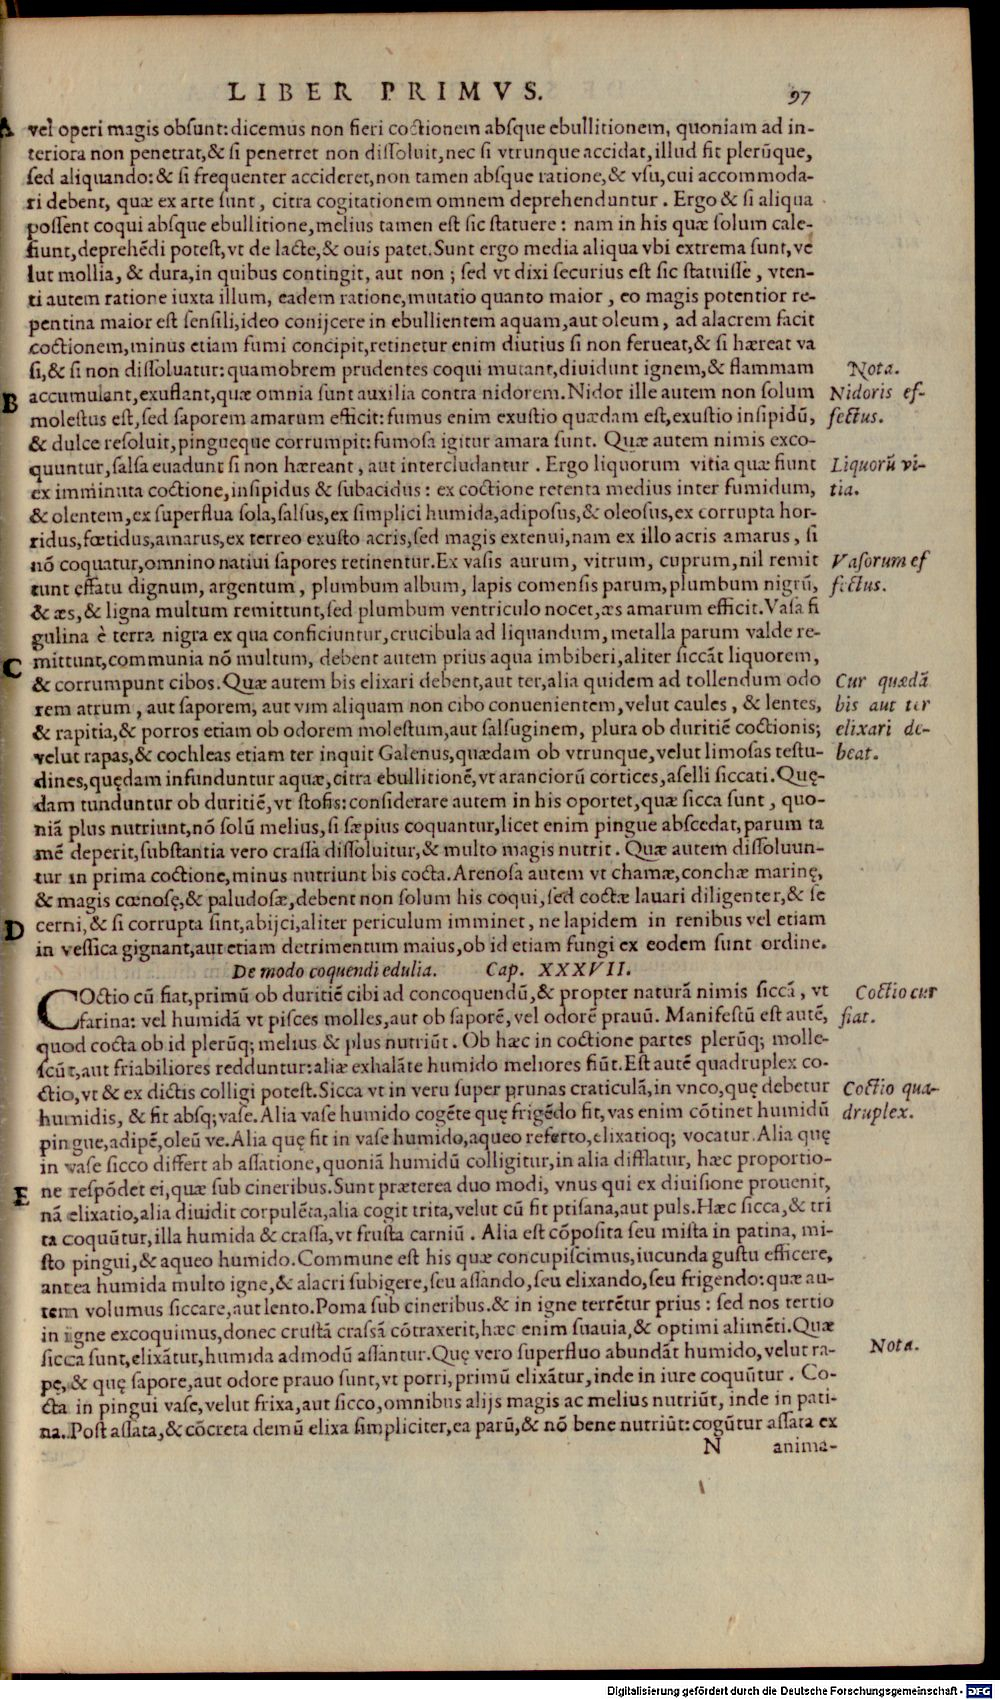 LIBER PRIMVS.
97
A
vel operi magis obsunt: dicemus non fieri coctionem absque ebullitionem, quoniam ad in-
teriora non penetrat, & si penetret non dissoluit, nec si vtrunque accidat, illud fit plerũque,
sed aliquando: & si frequenter accideret, non tamen absque ratione, & vsu, cui accommoda-
ri debent, quæ ex arte sunt, citra cogitationem omnem deprehenduntur. Ergo & si aliqua
possent coqui absque ebullitione, melius tamen est sic statuere: nam in his quæ solum cale-
fiunt, deprehẽdi potest, vt de lacte, & ouis patet. Sunt ergo media aliqua vbi extrema sunt, ve
lut mollia, & dura, in quibus contingit, aut non; sed vt dixi securius est sic statuisse, vten-
ti autem ratione iuxta illum, eadem ratione, mutatio quanto maior, eo magis potentior re-
pentina maior est sensili, ideo conijcere in ebullientem aquam, aut oleum, ad alacrem facit
coctionem, minus etiam fumi concipit, retinetur enim diutius si non ferueat, & si hæreat va
si, & si non dissoluatur: quamobrem prudentes coqui mutant, diuidunt ignem, & flammam
Nota.
B
accumulant, exuflant, quæ omnia sunt auxilia contra nidorem. Nidor ille autem non solum
Nidoris ef-
molestus est, sed saporem amarum efficit: fumus enim exustio quædam est, exustio insipidũ,
fectus.
& dulce resoluit, pingueque corrumpit: fumosa igitur amara sunt. Quæ autem nimis exco-
quuntur, salsa euadunt si non hæreant, aut intercludantur. Ergo liquorum vitia quæ fiunt
Liquorũ vi-
ex imminuta coctione, insipidus & subacidus: ex coctione retenta medius inter fumidum,
tia.
& olentem, ex superflua sola, salsus, ex simplici humida, adiposus, & oleosus, ex corrupta hor-
ridus, fœtidus, amarus, ex terreo exusto acris, sed magis extenui, nam ex illo acris amarus, si
nõ coquatur, omnino natiui sapores retinentur. Ex vasis aurum, vitrum, cuprum, nil remit
Vasorum ef
tunt effatu dignum, argentum, plumbum album, lapis comensis parum, plumbum nigrũ,
fectus.
& æs, & ligna multum remittunt, sed plumbum ventriculo nocet, æs amarum efficit. Vasa fi
gulina è terra nigra ex qua conficiuntur, crucibula ad liquandum, metalla parum valde re-
C
mittunt, communia nõ multum, debent autem prius aqua imbiberi, aliter siccãt liquorem,
& corrumpunt cibos. Quæ autem bis elixari debent, aut ter, alia quidem ad tollendum odo
Cur quædã
rem atrum, aut saporem, aut vim aliquam non cibo conuenientem, velut caules, & lentes,
bis aut ter
& rapitia, & porros etiam ob odorem molestum, aut salsuginem, plura ob duritiẽ coctionis;
elixari de-
velut rapas, & cochleas etiam ter inquit Galenus, quædam ob vtrunque, velut limosas testu-
beat.
dines, quędam infunduntur aquæ, citra ebullitionẽ, vt aranciorũ cortices, aselli siccati. Quę-
dam tunduntur ob duritiẽ, vt stofis: considerare autem in his oportet, quæ sicca sunt, quo-
niã plus nutriunt, nõ solũ melius, si sæpius coquantur, licet enim pingue abscedat, parum ta
mẽ deperit, substantia vero crassa dissoluitur, & multo magis nutrit. Quæ autem dissoluun-
tur in prima coctione, minus nutriunt bis cocta. Arenosa autem vt chamæ, conchæ marinę,
& magis cœnosę, & paludosæ, debent non solum his coqui, sed coctæ lauari diligenter, & se
D
cerni, & si corrupta sint, abijci, aliter periculum imminet, ne lapidem in renibus vel etiam
in vessica gignant, aut etiam detrimentum maius, ob id etiam fungi ex eodem sunt ordine.
De modo coquendi edulia. Cap. XXXVII.
COctio cũ fiat, primũ ob duritiẽ cibi ad concoquendũ, & propter naturã nimis siccã, vt
Coctio cur
farina: vel humidã vt pisces molles, aut ob saporẽ, vel odorẽ prauũ. Manifestũ est autẽ,
fiat.
quod cocta ob id plerũq; melius & plus nutriũt. Ob hæc in coctione partes plerũq; molle-
scũt, aut friabiliores redduntur: aliæ exhalãte humido meliores fiũt. Est autẽ quadruplex co-
ctio, vt & ex dictis colligi potest. Sicca vt in veru super prunas craticulã, in vnco, quę debetur
Coctio qua-
humidis, & fit absq; vase. Alia vase humido cogẽte quę frigẽdo fit, vas enim cõtinet humidũ
druplex.
pingue, adipẽ, oleũ ve. Alia quę fit in vase humido, aqueo referto, elixatioq; vocatur. Alia quę
in vase sicco differt ab assatione, quoniã humidũ colligitur, in alia difflatur, hæc proportio-
E
ne respõdet ei, quæ sub cineribus. Sunt præterea duo modi, vnus qui ex diuisione prouenit,
nã elixatio, alia diuidit corpulẽta, alia cogit trita, velut cũ fit ptisana, aut puls. Hæc sicca, & tri
ta coquũtur, illa humida & crassa, vt frusta carniũ. Alia est cõposita seu mista in patina, mi-
sto pingui, & aqueo humido. Commune est his quæ concupiscimus, iucunda gustu efficere,
antea humida multo igne, & alacri subigere, seu assando, seu elixando, seu frigendo: quæ au-
tem volumus siccare, aut lento. Poma sub cineribus. & in igne terrẽtur prius: sed nos tertio
in igne excoquimus, donec crustã crassã cõtraxerit, hæc enim suauia, & optimi alimẽti. Quæ
sicca sunt, elixãtur, humida admodũ assantur. Quę vero superfluo abundãt humido, velut ra-
Nota.
pę, & quę sapore, aut odore prauo sunt, vt porri, primũ elixãtur, inde in iure coquũtur. Co-
cta in pingui vase, velut frixa, aut sicco, omnibus alijs magis ac melius nutriũt, inde in pati-
na. Post assata, & cõcreta demũ elixa simpliciter, ea parũ, & nõ bene nutriũt: cogũtur assata ex
N anima-
Digitalisierung gefördert durch die Deutsche Forschungsgemeinschaft - DFG